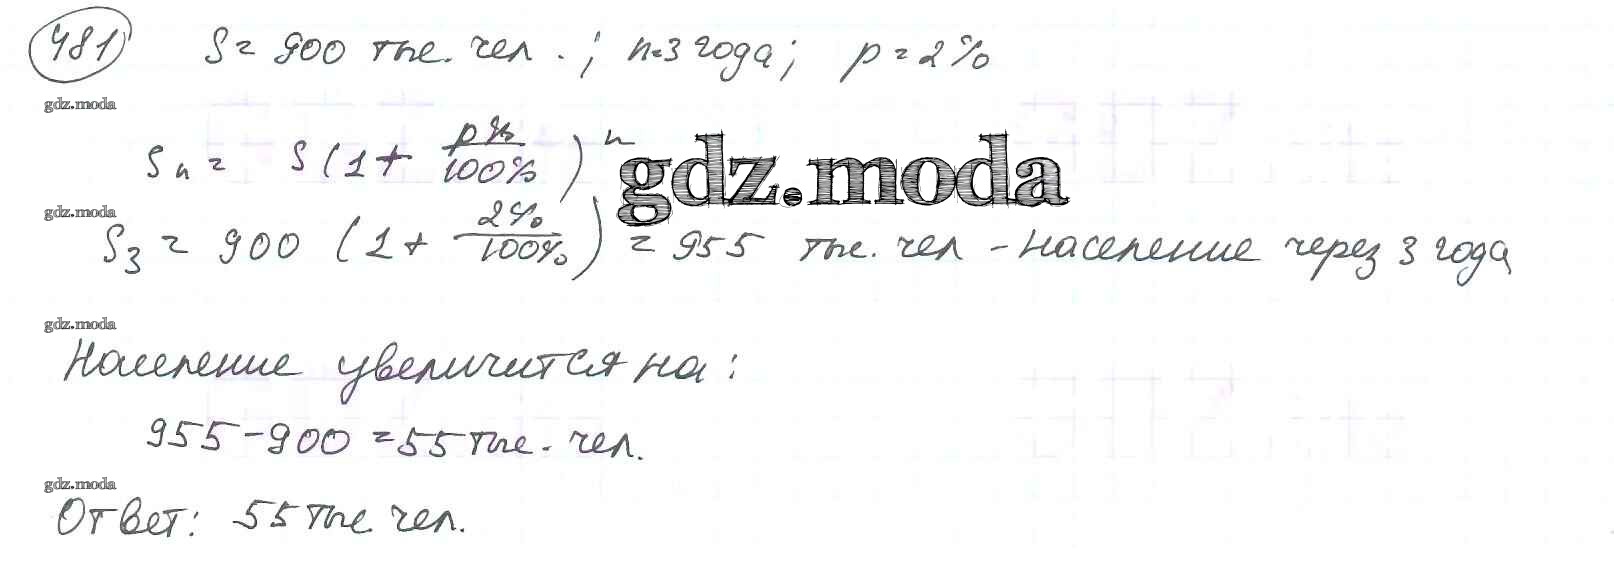 481) S = 900 тыс. чел.; n=3 года; p = 2%
gdz.moda
Sn = S(1 + p%/100%)^n
gdz.moda
gdz.moda
S3 = 900 (1 + 2%/100%) = 955 тыс. чел - население через 3 года
gdz.moda
Население увеличится на:
955-900 = 55 тыс. чел.
gdz.moda
Ответ: 55 тыс чел.